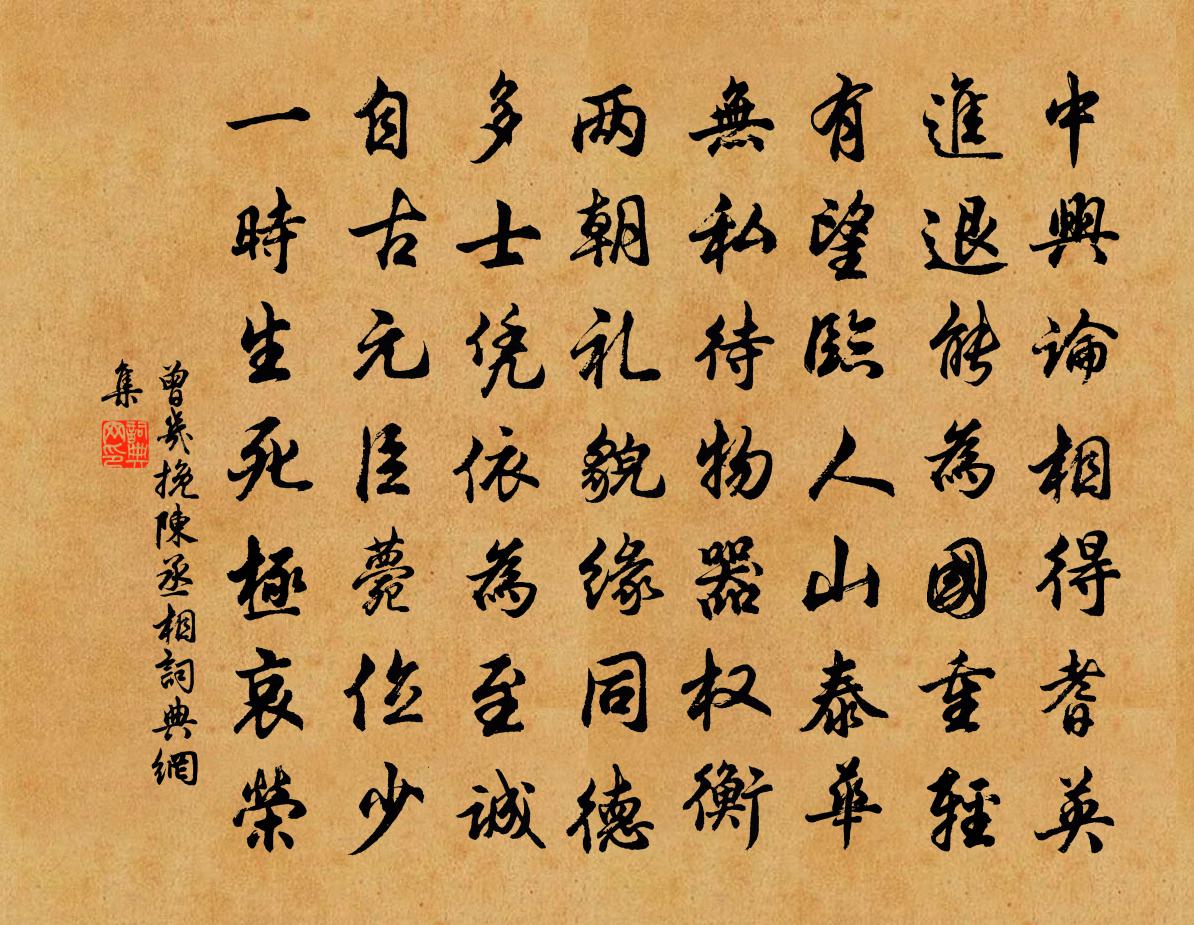 中興論相得耆英
進退能為國重輕
有望臨人山泰華
無私待物器权衡
两朝礼貌缘同德
多士凭依為至誠
自古元臣薨位少
一時生死極哀榮
曾幾挽陳丞相詞典網
集
詞典網印